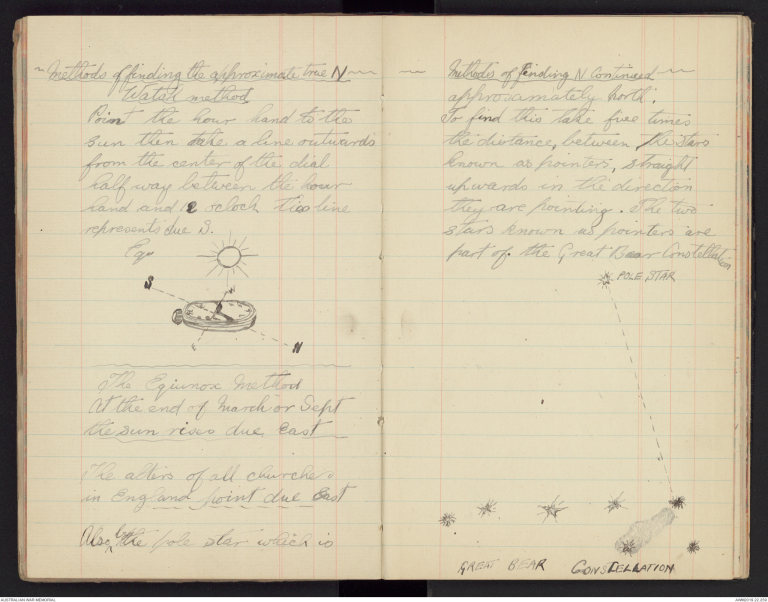 Methods of finding the approximate true N
Watch method
Point the hour hand to the
sun then take a line outwards
from the center of the dial
half way between the hour
hand and 12 oclock this line
represents due S.
Eg
S
W
E
N
The Equinox Method
At the end of March or Sept
the sun rises due East
The alters of all churches
in England point due East
Also by the pole star which is
Methods of finding N continued
approxamately North.
To find this take five times
the distance, between the stars
known as pointers, straight
upwards in the direction
they are pointing. The two
stars known as pointers are
part of the Great Bear Constellation
POLE STAR
GREAT BEAR CONSTELLATION
AUSTRALIAN WAR MEMORIAL